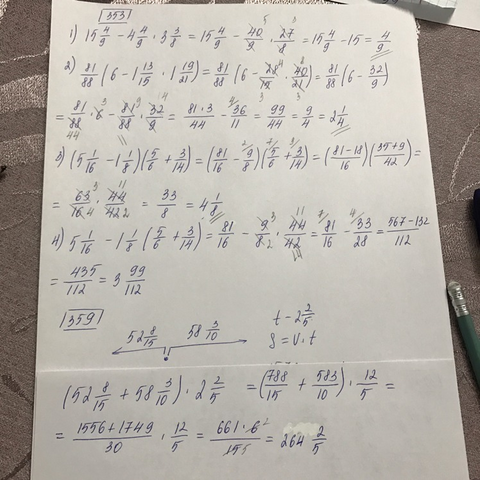 353
1) 15 4/9 - 4 4/9 · 3 3/8 = 15 4/9 - 40/9 · 27/8 = 15 4/9 - 15 = 4/9
2) 81/88 (6 - 1 13/15 · 1 19/21) = 81/88 (6 - 28/15 · 40/21) = 81/88 (6 - 32/9)
= 81/88 · 6 - 81/88 · 32/9 = 81·3/44 - 36/11 = 99/44 = 9/4 = 2 1/4
3) (5 1/16 - 1 1/8)(5/6 + 3/14) = (81/16 - 9/8)(5/6 + 3/14) = (81-18/16)(35+9/42) =
= 63/16 · 44/42 = 33/8 = 4 1/8
4) 5 1/16 - 1 1/8 (5/6 + 3/14) = 81/16 - 9/8 · 44/42 = 81/16 - 33/28 = 567-132/112
= 435/112 = 3 99/112
359
52 8/15 58 3/10 t - 2 2/5
S = v · t
(52 8/15 + 58 3/10) · 2 2/5 = (788/15 + 583/10) · 12/5 =
= 1556+1749/30 · 12/5 = 661·6/15 = 264 2/5